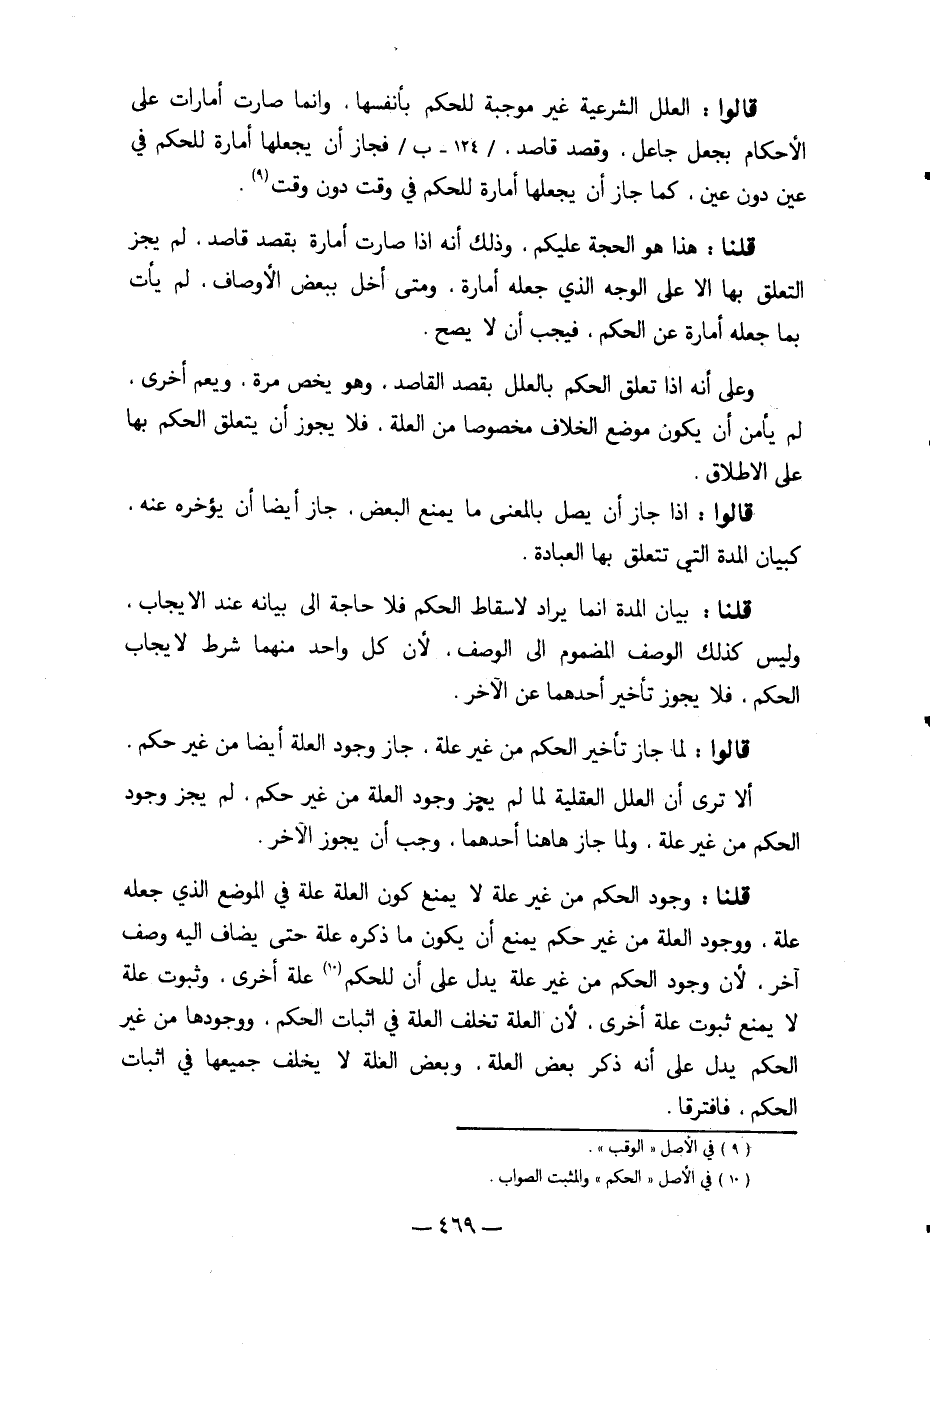 قالوا : العلل الشرعية غير موجبة للحكم بأنفسها ، وانما صارت أمارات على
الأحكام بجعل جاعل ، وقصد قاصد ، / ١٢٤ ـ ب / فجاز أن يجعلها أمارة للحكم في
عين دون عين ، كما جاز أن يجعلها أمارة للحكم في وقت دون وقت(٩) .
قلنا : هذا هو الحجة عليكم ، وذلك أنه اذا صارت أمارة بقصد قاصد ، لم يجز
التعلق بها الا على الوجه الذي جعله أمارة ، ومتى أخل ببعض الأوصاف ، لم يأت
بما جعله أمارة عن الحكم ، فيجب أن لا يصح .
وعلى أنه اذا تعلق الحكم بالعلل بقصد القاصد ، وهو يخص مرة ، ويعم أخرى ،
لم يأمن أن يكون موضع الخلاف مخصوصا من العلة ، فلا يجوز أن يتعلق الحكم بها
على الاطلاق .
قالوا : اذا جاز أن يصل بالمعنى ما يمنع البعض ، جاز أيضا أن يؤخره عنه ،
كبيان المدة التي تتعلق بها العبادة .
قلنا : بيان المدة انما يراد لاسقاط الحكم فلا حاجة الى بيانه عند الايجاب ،
وليس كذلك الوصف المضموم الى الوصف ، لأن كل واحد منهما شرط لايجاب
الحكم ، فلا يجوز تأخير أحدهما عن الآخر .
قالوا : لما جاز تأخير الحكم من غير علة ، جاز وجود العلة أيضا من غير حكم .
ألا ترى أن العلل العقلية لما لم يجز وجود العلة من غير حكم ، لم يجز وجود
الحكم من غير علة ، ولما جاز هاهنا أحدهما ، وجب أن يجوز الآخر .
قلنا : وجود الحكم من غير علة لا يمنع كون العلة علة في الموضع الذي جعله
علة ، ووجود العلة من غير حكم يمنع أن يكون ما ذكره علة حتى يضاف اليه وصف
آخر ، لأن وجود الحكم من غير علة يدل على أن للحكم(١٠) علة أخرى ، وثبوت علة
لا يمنع ثبوت علة أخرى ، لأن العلة تخلف العلة في اثبات الحكم ، ووجودها من غير
الحكم يدل على أنه ذكر بعض العلة ، وبعض العلة لا يخلف جميعها في اثبات
الحكم ، فافترقا .
( ٩ ) في الأصل « الوقب » .
( ١٠ ) في الأصل « الحكم » والمثبت الصواب .
— ٤٦٩ —